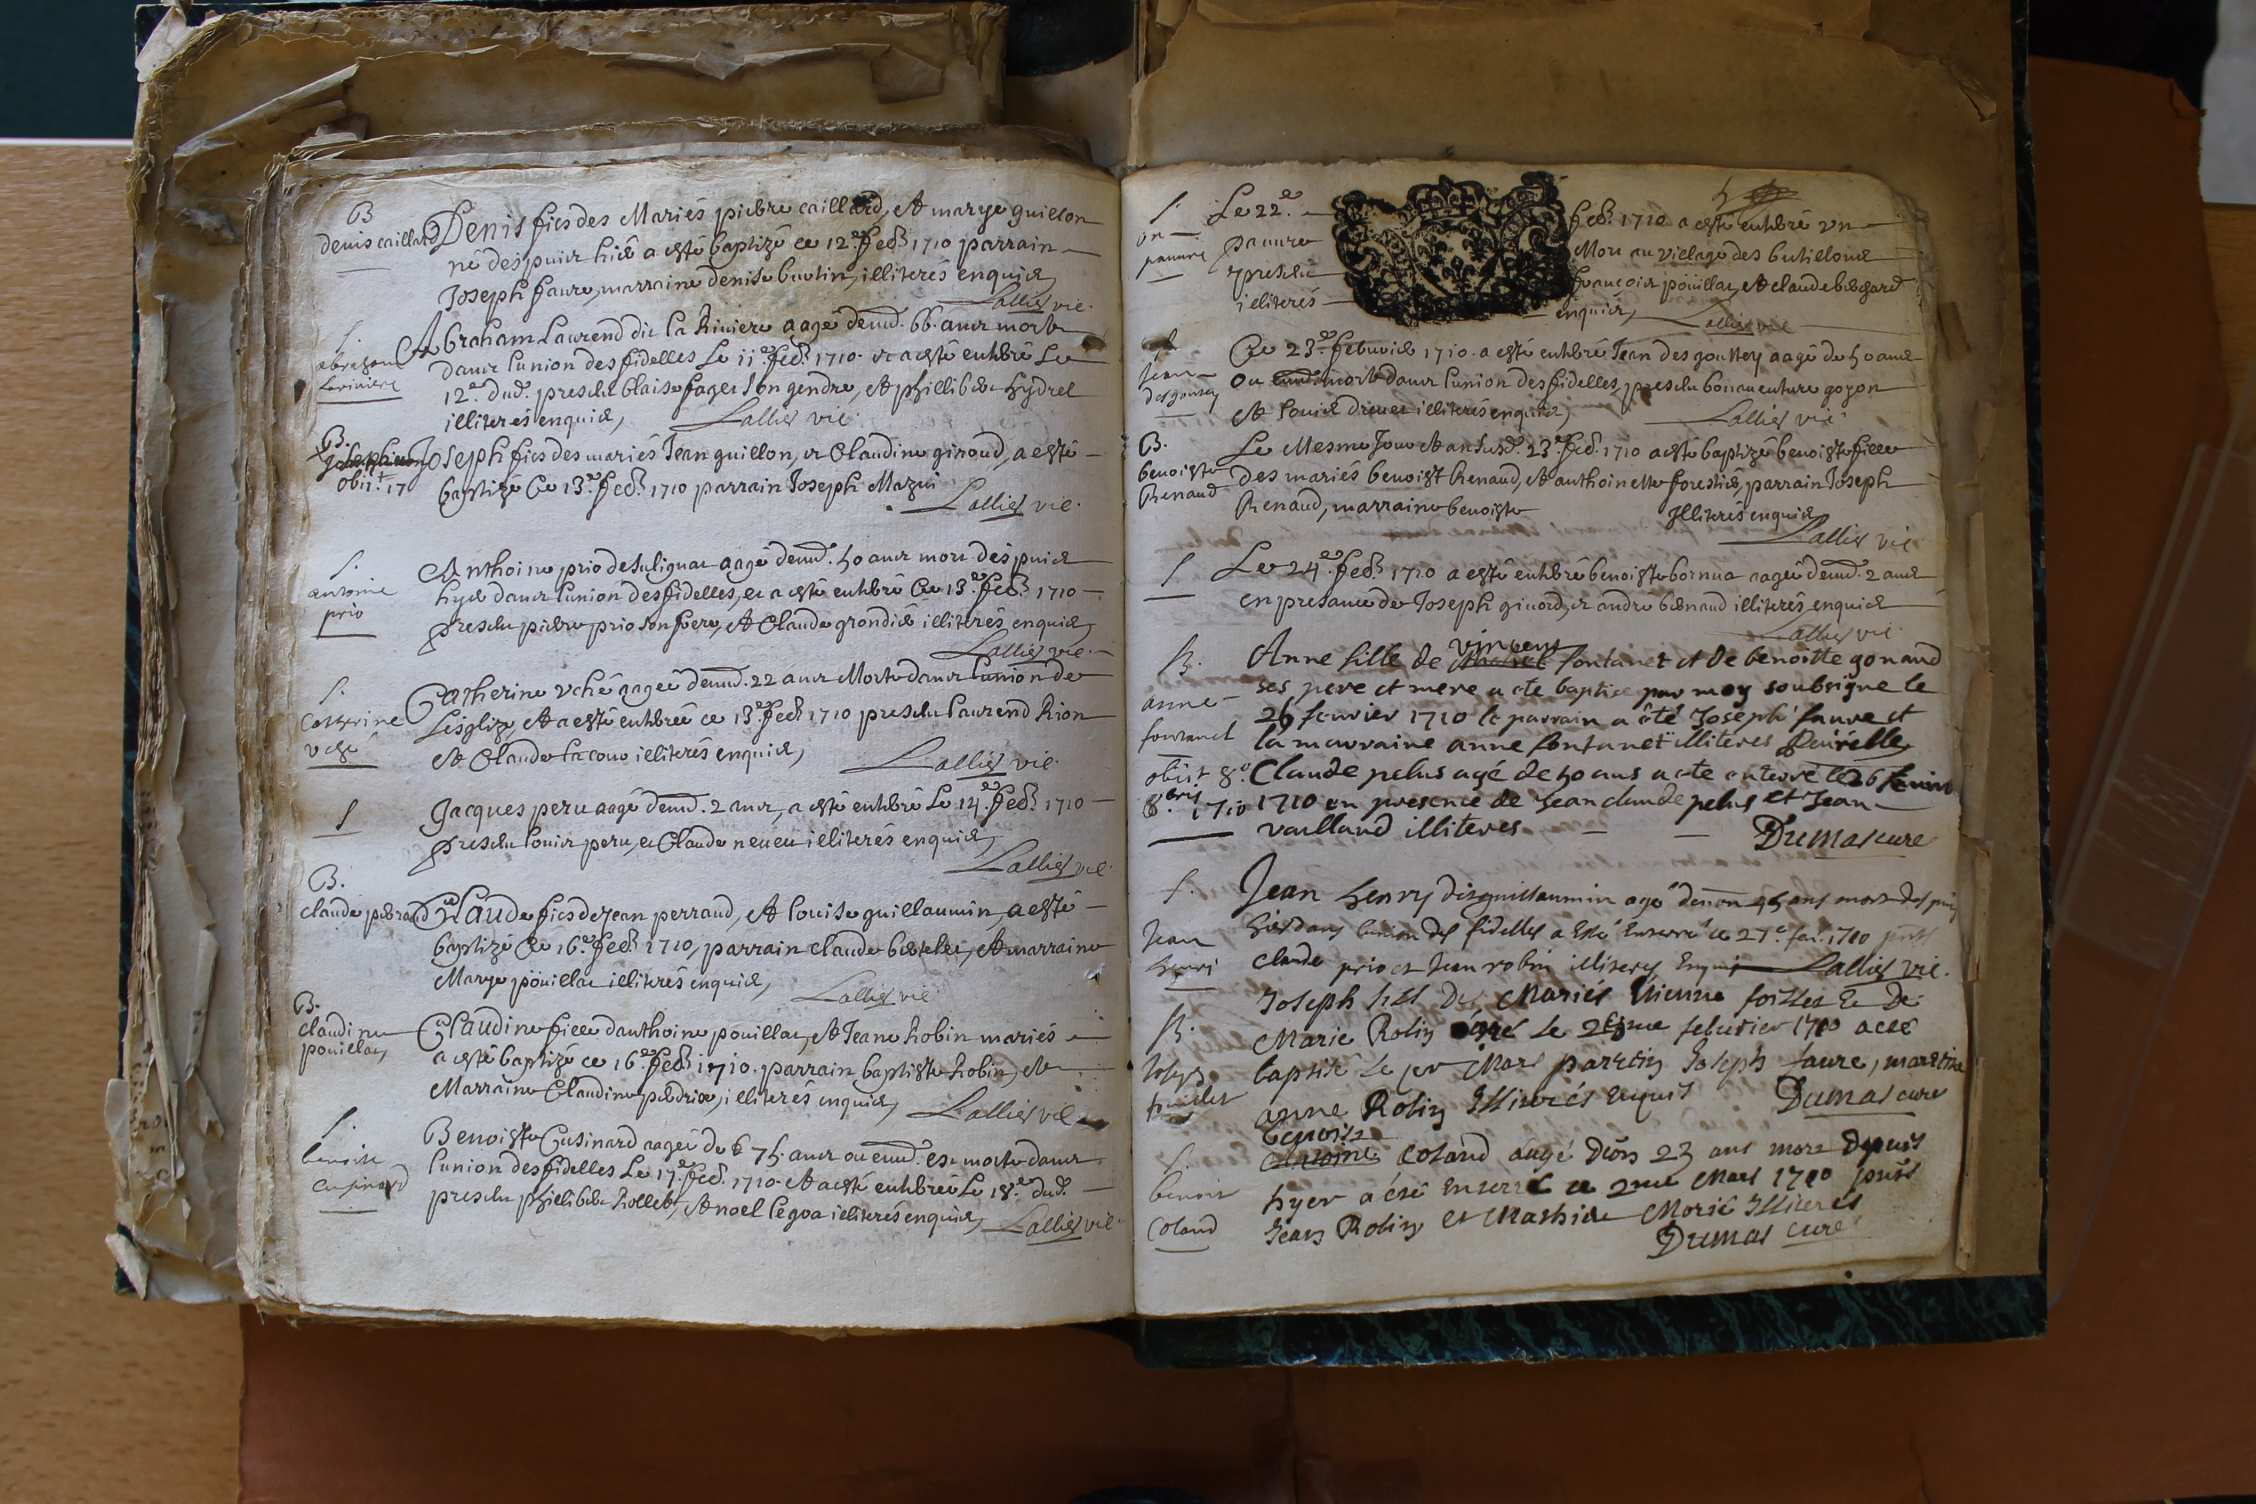 B
denis caillard
Denis fies des Mariés pierre caillard, et marye guillon
né despuis hier a esté baptizé ce 12.e feb. 1710 parrain
Joseph faure, marraine denise buotin, illiterés enquis,
Lallier vic.
S.
abraham
lariviere
Abraham Laurend dit la Riviere aagé denud. 66. ans mort
dans l'union des fidelles Le 11.e feb. 1710. et a esté enterré Le
12.e dud. presents blaise fager son gendre, et phillibert hydrel
illiterés enquis, Lallier vic.
B.
obiit 17
Joseph fies des mariés Jean guillon, et Claudine giroud, a esté
baptizé Ce 13.e feb. 1710 parrain Joseph Mazui
Lallier vic.
S.
antoine
prio
Anthoine prio de Sulignat aagé denud. 50 ans mort despuis
hyer dans l'union des fidelles, et a esté enterré Ce 13.e feb. 1710
presents pierre prio son frere, et Claude grondier illiterés enquis,
Lallier vic.
S.
Catherine
uché
Catherine uché aageé denud. 22 ans Morte dans l'union de
L'esglize, et a esté enterreé ce 13.e feb. 1710 presents Laurend Rion
et Claude Lacour illiterés enquis,
Lallier vic.
S
Jacques peru aagé denud. 2 ans, a esté enterré Le 14.e feb. 1710
presents louis peru, et Claude neueu illiterés enquis,
Lallier vic.
B.
Claude perraud
Claude fies de Jean perraud, et louise guillaumin, a esté
baptizé Ce 16.e feb. 1710, parrain claude bertelet, et marraine
Marye pöuillat illiterés enquis,
Lallier vic.
B.
claudine
pouillat
Claudine fiee d'anthoine pouillat, et Jeane Robin mariés
a esté baptizé ce 16.e feb. 1710. parrain baptiste Robin, et
Marraine Claudine perdrix, illiterés enquis,
Lallier vic.
S.
benoite
cusinard
Benoiste Cusinard aageé de 75. ans ou enud. est morte dans
l'union des fidelles Le 17.e feb. 1710. et a esté enterreé Le 18.e dud.
presents phillibert Rollet, et noel legoa illiterés enquis,
Lallier vic.
5
S.
un
pauvre
Le 22.e feb. 1710 a esté enterré un
pauure Mort au village des butillons
presents francois pöuillat, et claude bichard
illiterés enquis, Lallier vic
S
Jean
desgousey
Ce 23.e februier 1710. a esté enterré Jean des gouttey aagé de 50 ans
ou enud. mort dans l'union des fidelles, presents bonauenture goyon
et louis driuet illiterés enquis,
Lallier vic
B.
benoiste
Renaud
Le Mesme Jour et an susd. 23.e feb. 1710 a esté baptizé benoiste fille
des mariés benoist Renaud, et anthoinette forestier, parrain Joseph
Renaud, marraine benoiste illiterés enquis
Lallier vic
S
Le 24.e feb. 1710 a esté enterré benoiste bornua aageé denud. 2 ans
en presance de Joseph giuord, et andré bernaud illiterés enquis
Lallier vic
B.
anne
fontanet
obiit 8.o
8.bris 1710
vincent
Anne fille de fontanet et de benoitte gonaud
ses pere et mere a ete baptisé par moy soubsigné le
26 fevrier 1710 le parrain a été Joseph faure et
la marraine anne fontanet illiteres
Claude pelus agé de 50 ans a ete enterré le 26 fevrier
1710 en presence de Jean claude pelus et Jean
vailland illiteres
Dumas curé
S.
Jean
henri
Jean henry dit guillaumin agé denon 45 ans mort des puis
hier dans l'union des fidelles a Esté Enterré ce 27.e fev. 1710 presents
Claude prio et Jean robin illiterés Enquis Lallier vic.
B.
Joseph
Joseph fils Des Mariés Etienne Et De
Marie Robin le 28me febvrier 1710 a eté
baptisé Le 1er Mars parrein Joseph faure, marreine
anne Robin Illiterés Enquis Dumas curé
S.
benoit
Coland
Benoist
Antoine Coland aagé 23 ans mort Depuis
hyer a été Enterré ce 2me Mars 1710
Jean Robin et Mathieu Morié Illiterés
Dumas curé